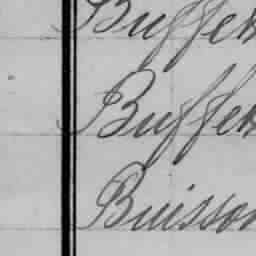 Buffet
Buffet
Buisson